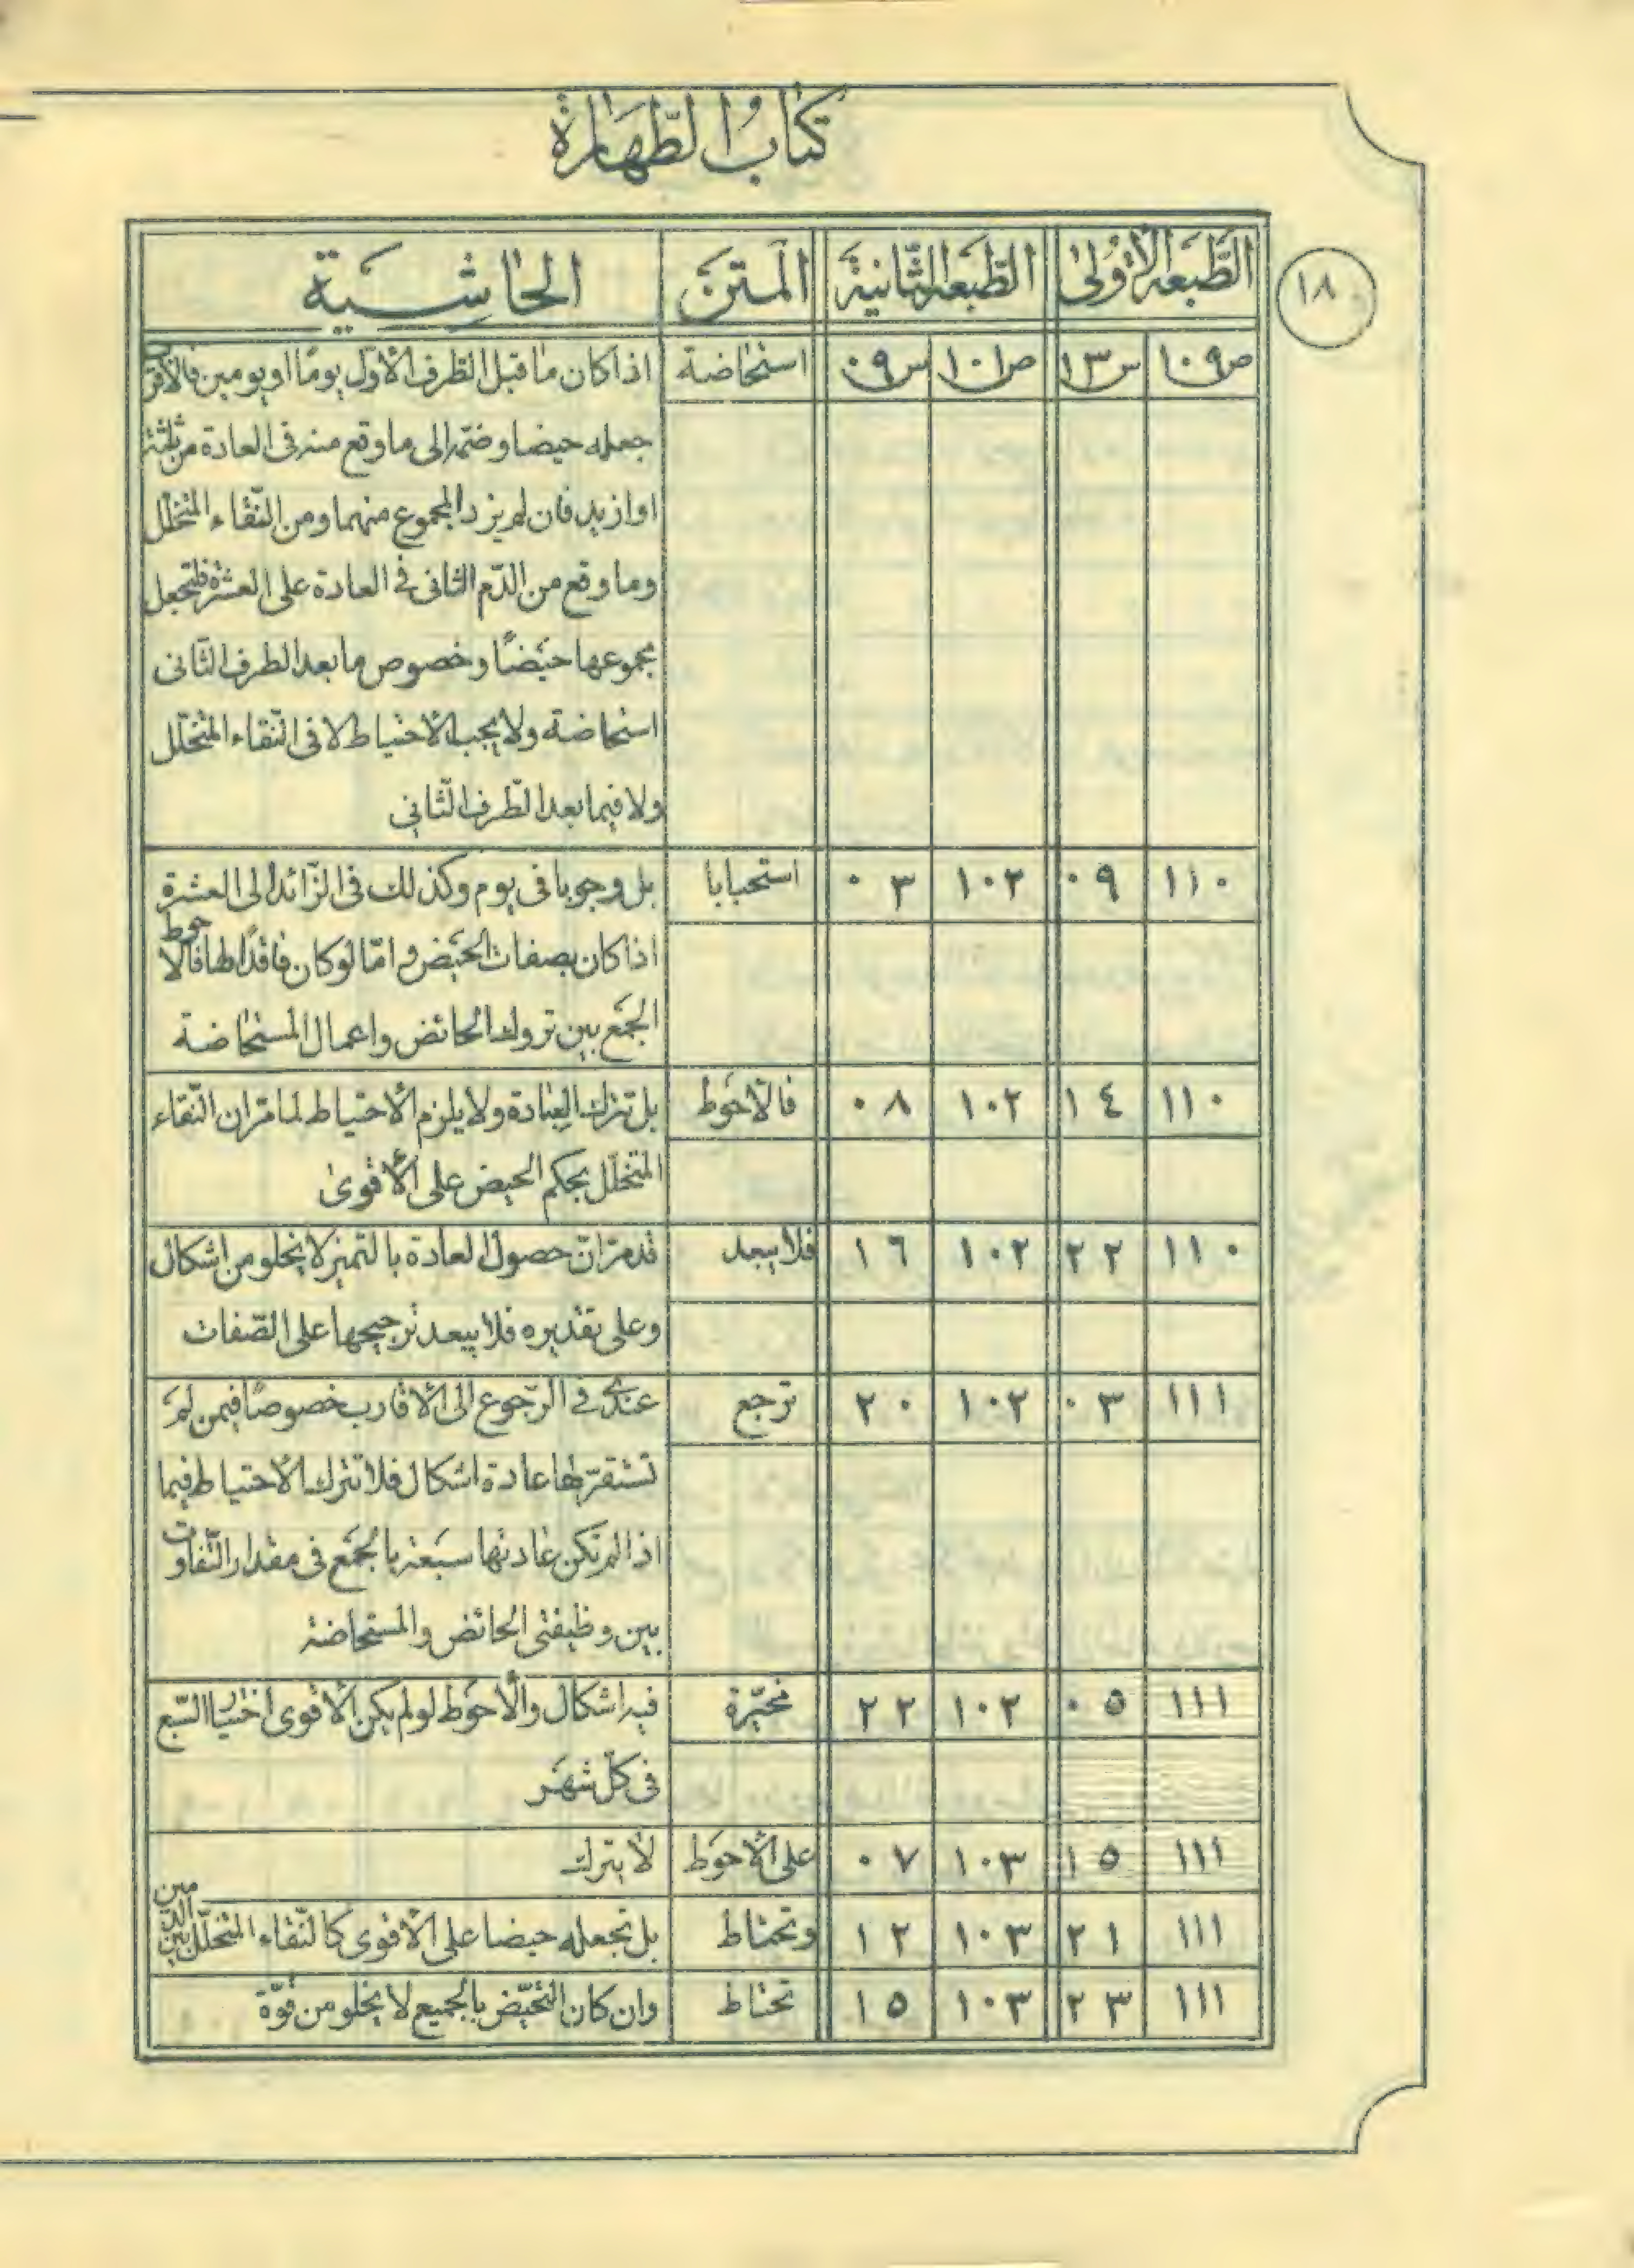 كتاب الطّهارة
١٨
الطّبعة الأولى الطّبعة الثّانية المتن الحاشية
ص١٠٩ س١٣ ص١٠١ س٠٩ استحاضة اذا كان ما قبل الطّرف الأوّل يومًا او يومين فالأقوى
جعله حيضا وضمّه الى ما وقع منه فى العادة من ثلثة
او ازيد فان لم يزد المجموع منهما ومن النّقاء المتخلّل
وما وقع من الدّم الثانى فى العادة على العشرة فلتجعل
مجموعها حيضًا وخصوص ما بعد الطرف الثّانى
استحاضة ولا يجب الاحتياط لا فى النّقاء المتخلّل
ولا فيما بعد الطّرف الثّانى
١١٠ ٠٩ ١٠٢ ٠٣ استحبابا بل وجوبا فى يوم وكذلك فى الزّائد الى العشرة
اذا كان بصفات الحيض و امّا لو كان فاقدًا لها فالأحوط
الجمع بين تروك الحائض واعمال المستحاضة
١١٠ ١٤ ١٠٢ ٠٨ فالأحوط بل تترك العبادة ولا يلزم الأحتياط لما مرّ ان النّقاء
المتخلّل بحكم الحيض على الأقوى
١١٠ ٢٢ ١٠٢ ١٦ فلا يبعد قد مرّ انّ حصول العادة بالتميز لا يخلو من اشكال
وعلى تقديره فلا يبعد ترجيحها على الصّفات
١١١ ٠٣ ١٠٢ ٢٠ ترجع عندى فى الرّجوع الى الأقارب خصوصًا فيمن لم
تستقرّ لها عادة اشكال فلا تترك الأحتياط فيما
اذا لم تكن عادتها سبعة بالجمع فى مقدار التّفاوت
بين وظيفتى الحائض والمستحاضة
١١١ ٠٥ ١٠٢ ٢٢ مخيّرة فيه اشكال والأحوط لو لم يكن الأقوى اختيار السّبع
فى كلّ شهر
١١١ ١٥ ١٠٣ ٠٧ على الأحوط لا يترك
١١١ ٢١ ١٠٣ ١٢ وتحتاط بل تجعله حيضا على الأقوى كالنّقاء المتخلّل بين الدّمين
١١١ ٢٣ ١٠٣ ١٥ تحتاط وان كان التحيّض بالجميع لا يخلو من قوّة